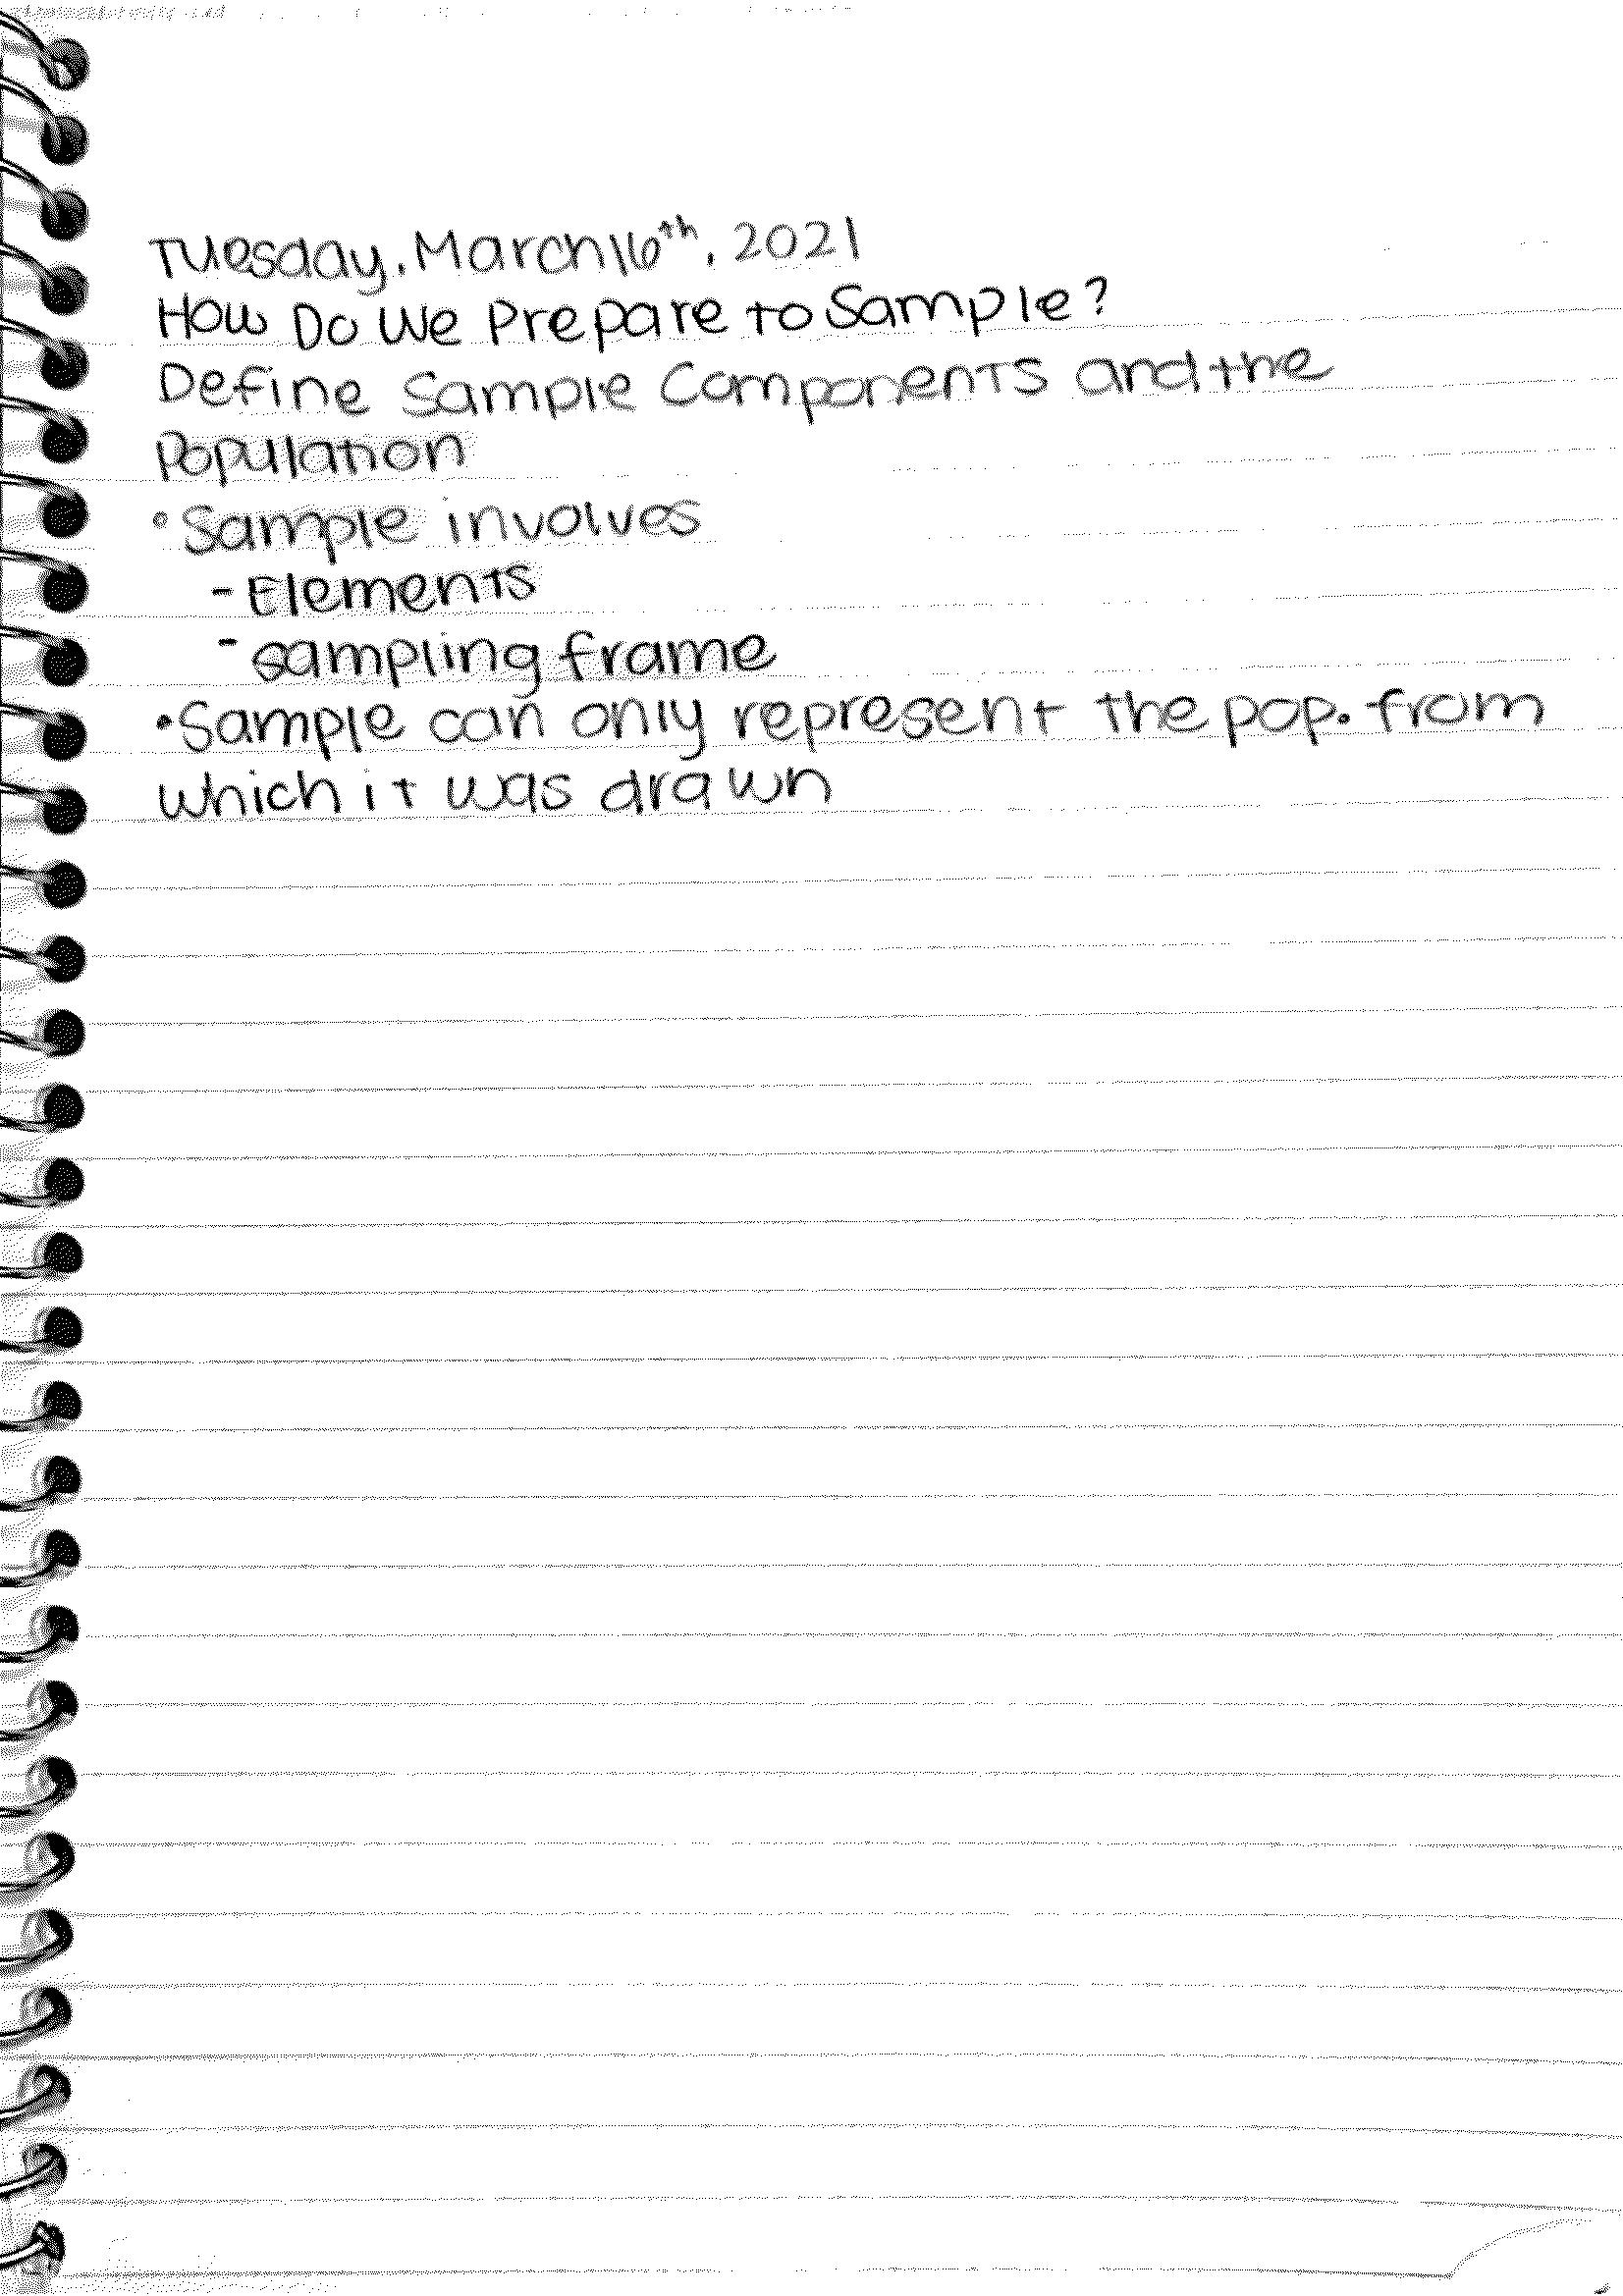 Tuesday, March 16th, 2021
How Do We Prepare to Sample?
Define Sample Components and the
Population
• Sample involves
- Elements
- sampling frame
• Sample can only represent the pop. from
which it was drawn